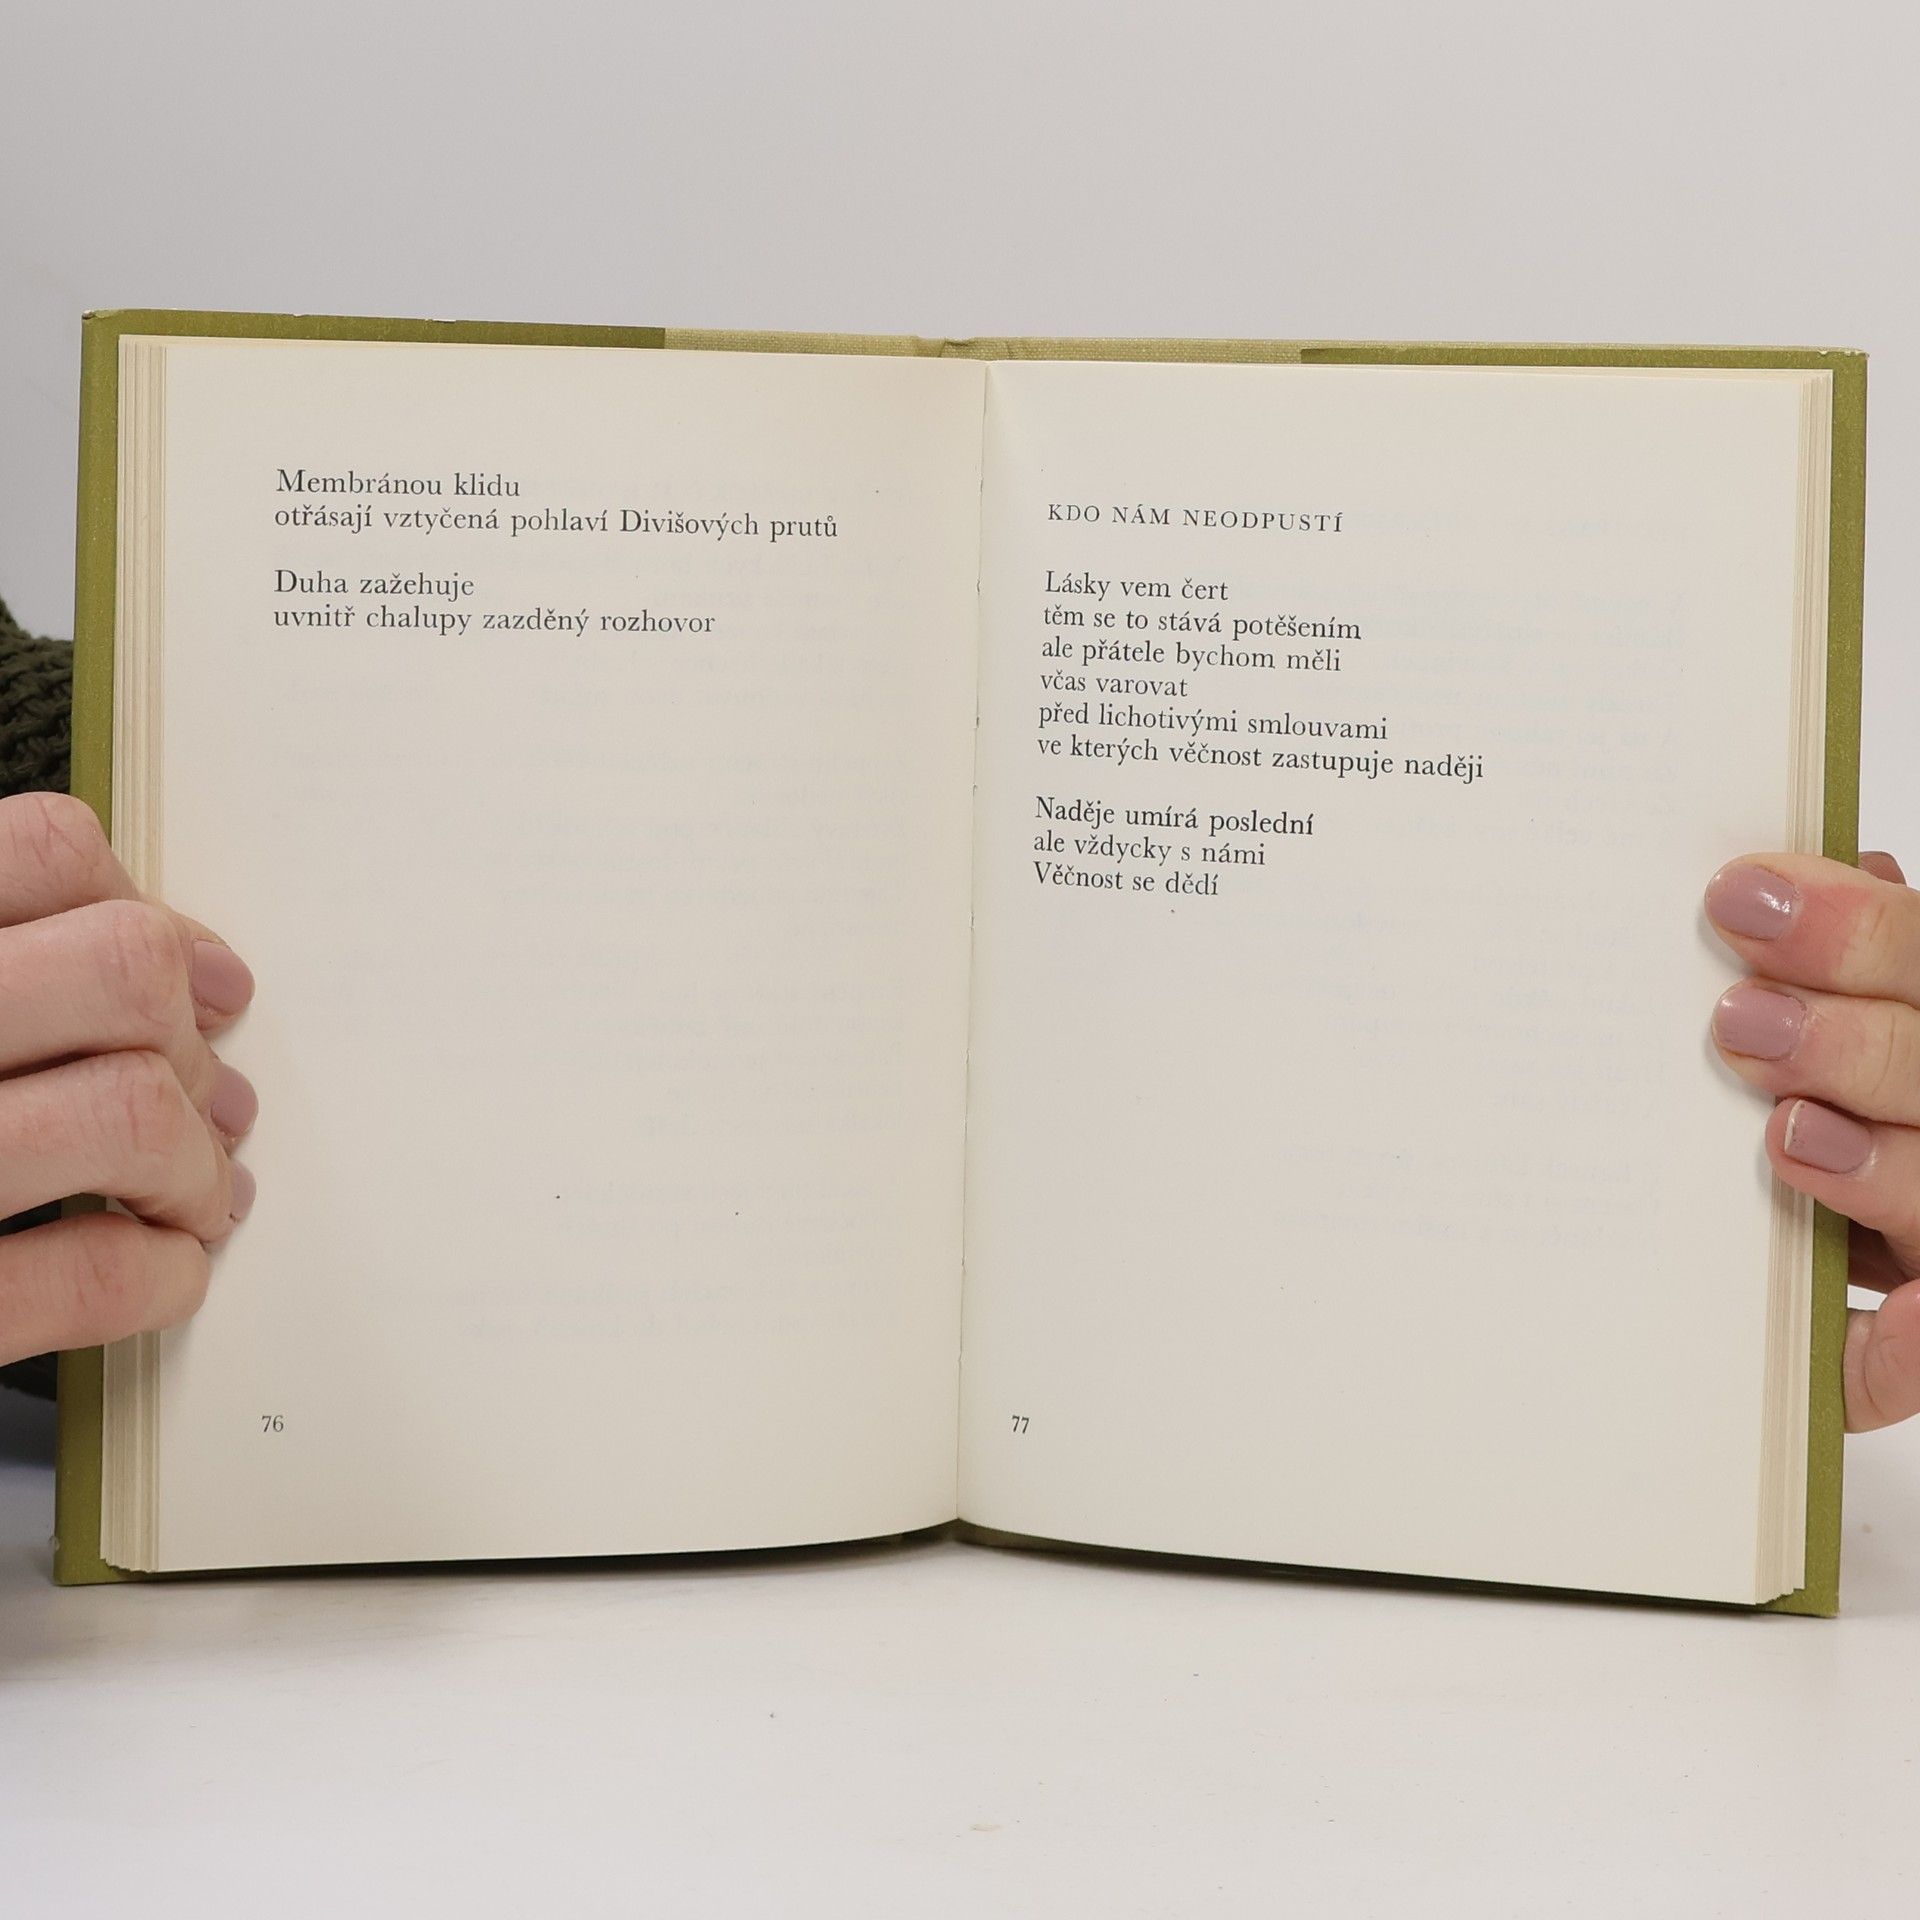 Membránou klidu
otřásají vztyčená pohlaví Divišových prutů
Duha zažehuje
uvnitř chalupy zazděný rozhovor
76
KDO NÁM NEODPUSTÍ
Lásky vem čert
těm se to stává potěšením
ale přátele bychom měli
včas varovat
před lichotivými smlouvami
ve kterých věčnost zastupuje naději
Naděje umírá poslední
ale vždycky s námi
Věčnost se dědí
77